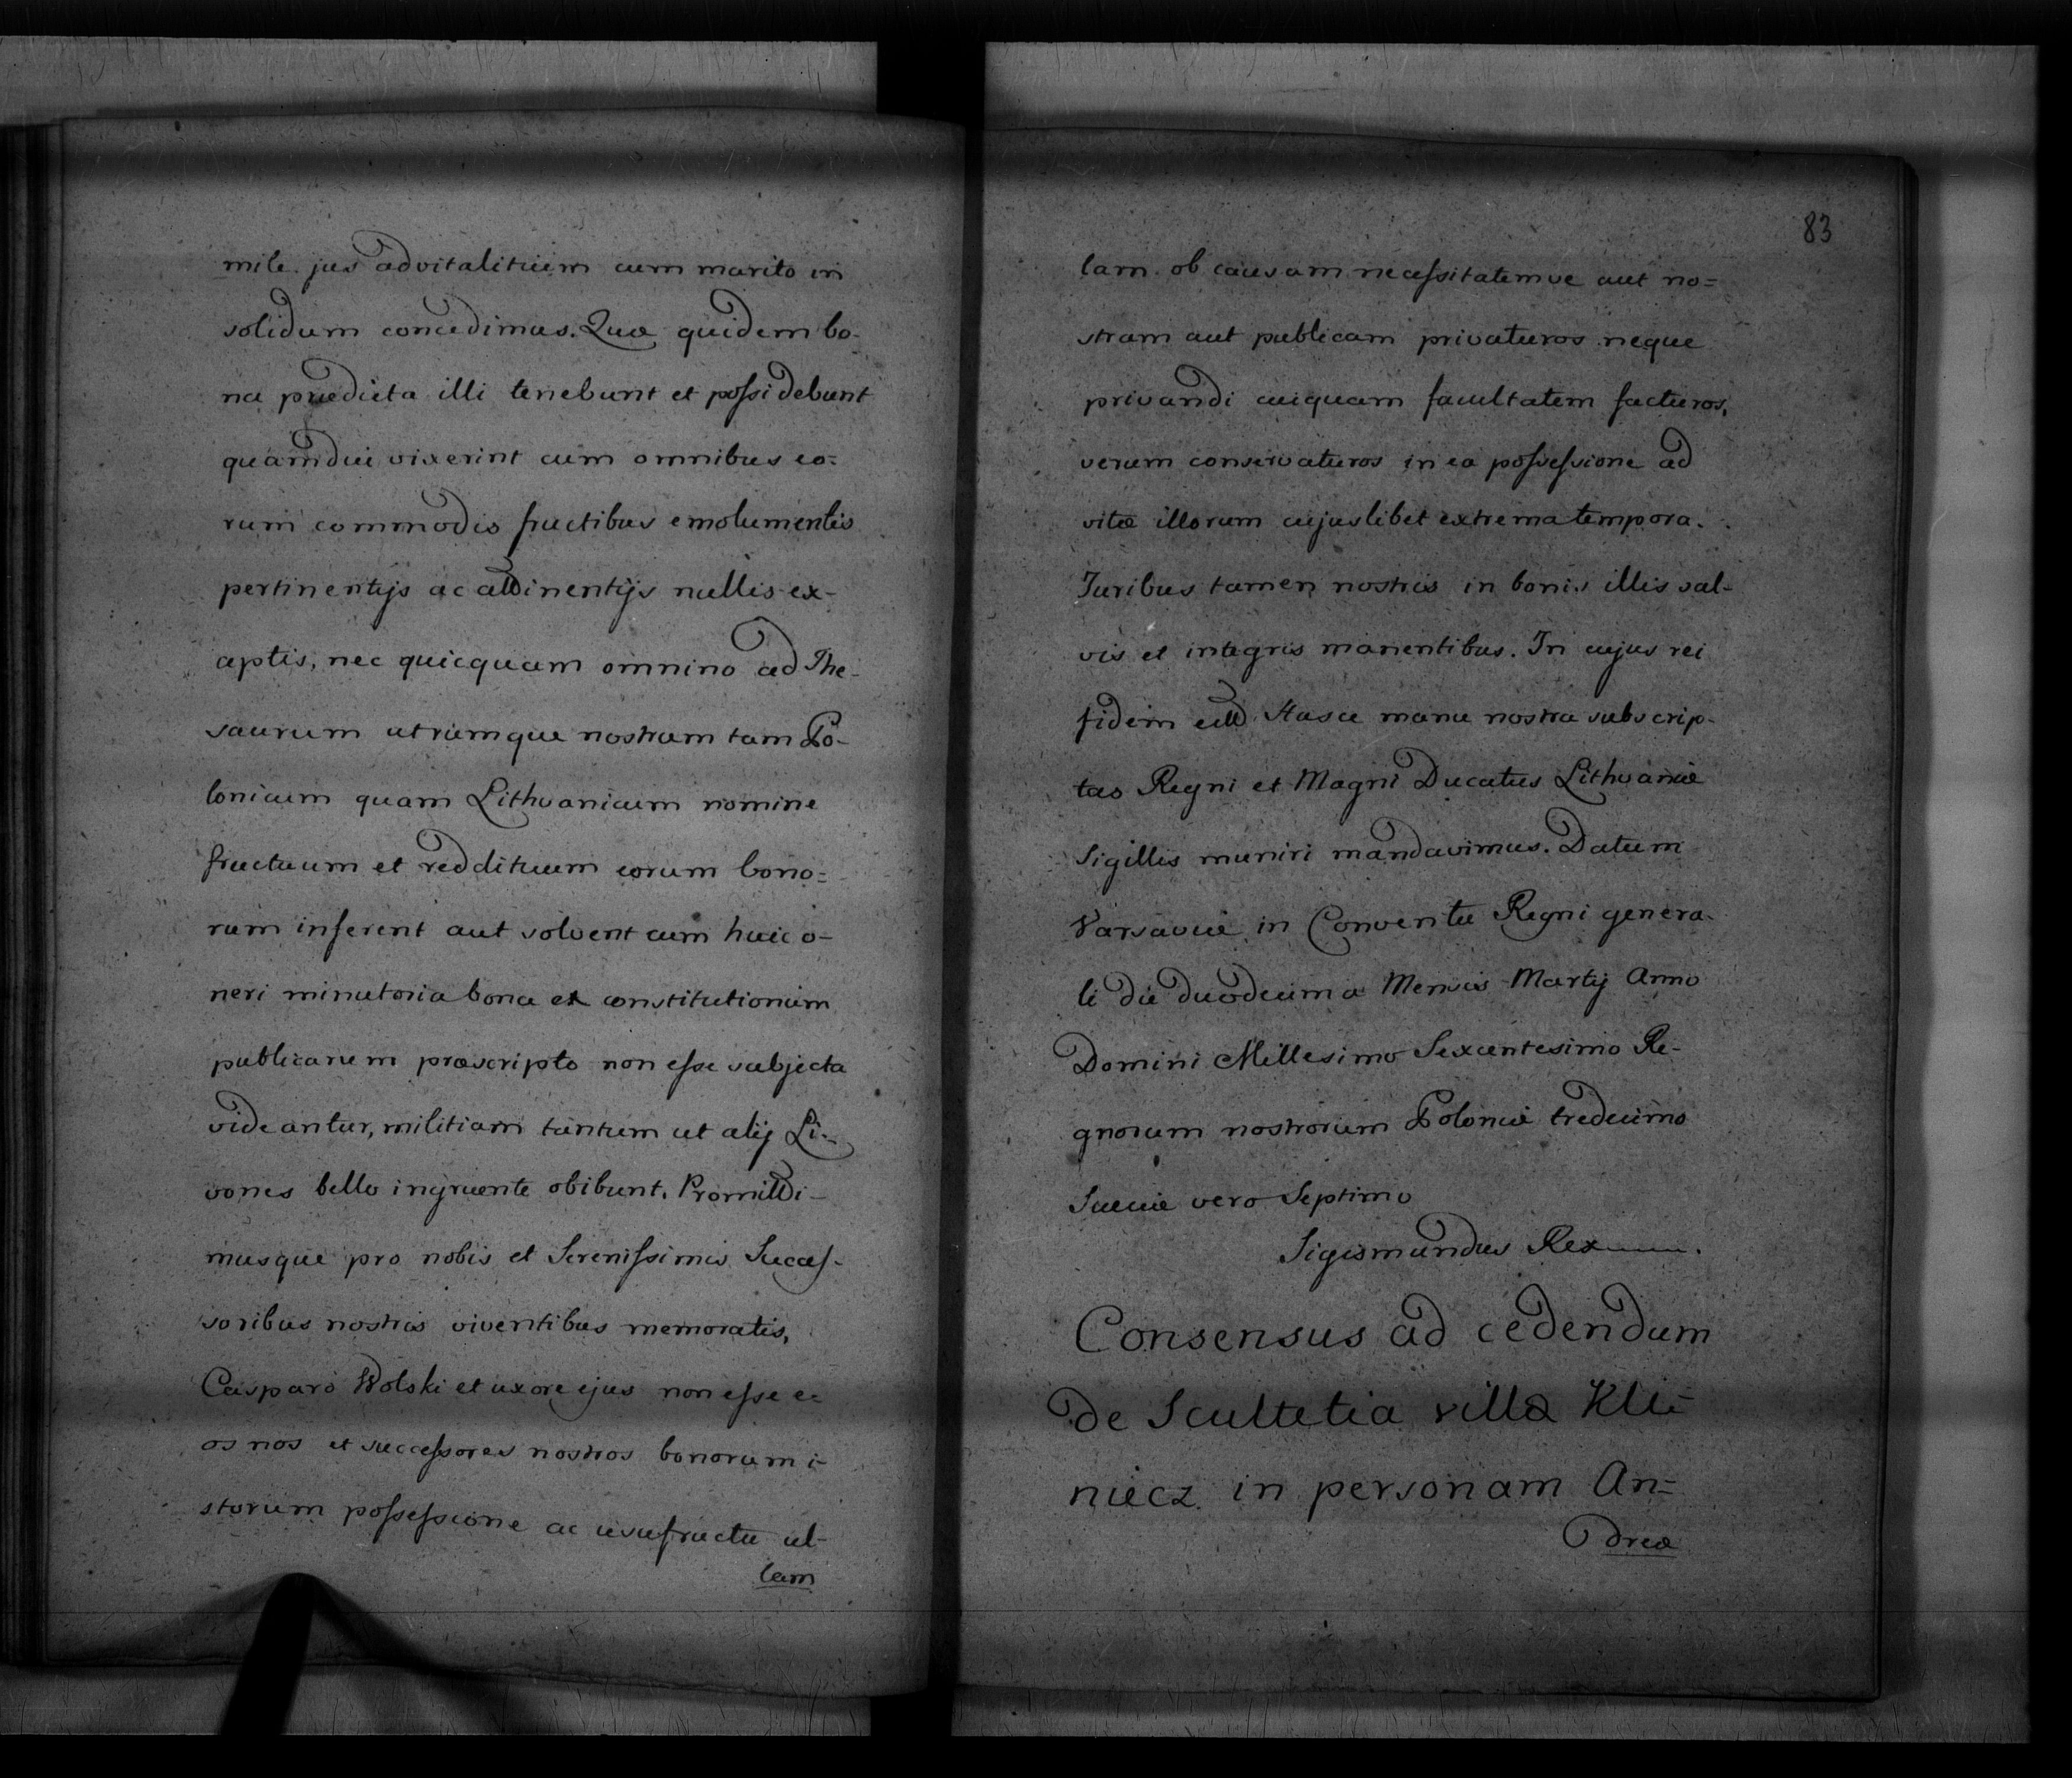 mile jus advitalitium cum marito in
solidum concedimus. Quæ quidem bo-
na prædicta illi tenebunt et possidebunt
quamdiu vixerint cum omnibus eo-
rum commodis fructibus emolumentis
pertinentijs ac attinentijs nullis ex-
ceptis, nec quicquam omnino ad The-
saurum utrumque nostrum tam Po-
lonicum quam Lithvanicum nomine
fructuum et reddituum eorum bono=
rum inferent aut solvent cum huic o-
neri minutoria bona et constitutionum
publicarum præscripto non esse subjecta
videantur, militiam tantum ut alij Li-
vones bello ingruente obibunt. Promitti-
musque pro nobis et Serenissimis Succes-
soribus nostris viventibus memoratis,
Casparo Wolski et uxore ejus non esse e-
os nos et successores nostros bonorum i-
storum possessione ac usufructu ul-
lam
83
lam ob causam necessitatemve aut no=
stram aut publicam privaturos neque
privandi cuiquam facultatem facturos,
verum conservaturos in ea possessione ad
vitæ illorum cujuslibet extrema tempora.
Juribus tamen nostris in bonis illis sal-
vis et integris manentibus. In cujus rei
fidem manu nostra subscrip-
tas Regni et Magni Ducatus Lithvaniæ
Sigillis muniri mandavimus. Datum
Varsaviæ in Conventu Regni genera-
li die duodecima Mensis Martij Anno
Domini Millesimo Sexcentesimo Re-
gnorum nostrorum Poloniæ tredecimo
Sueciæ vero Septimo
Sigismundus Rex
Consensus ad cedendum
de Scultetia villæ Kli-
niecz in personam An=
dreæ